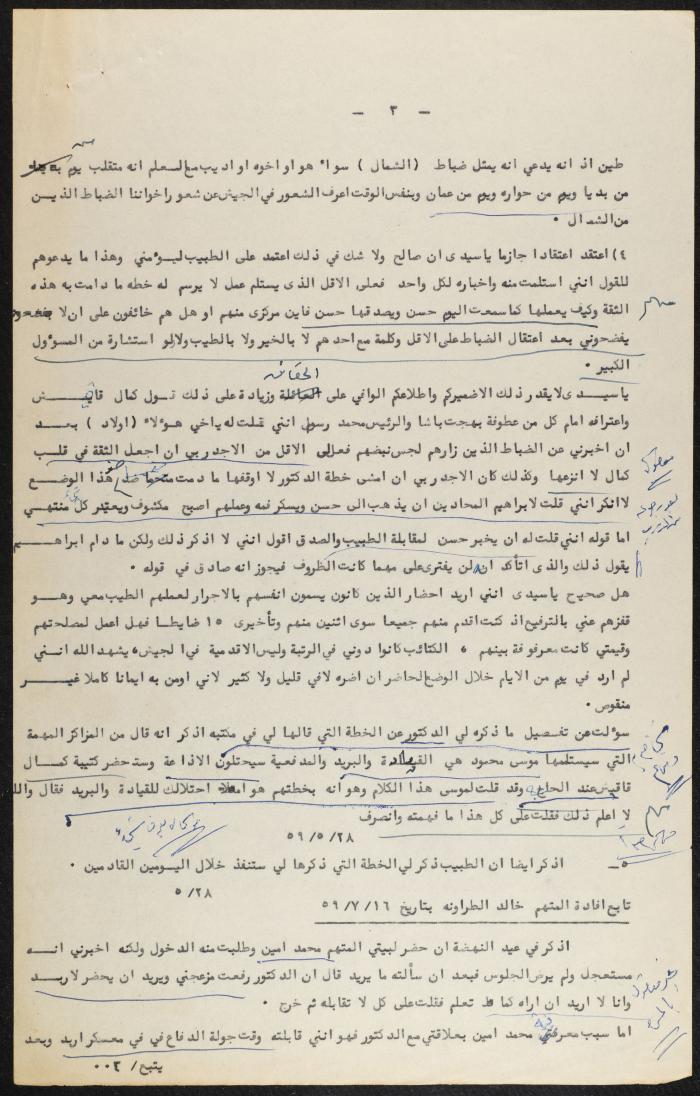 - ٣ -
طين اذ انه يدعي انه يمثل ضباط (الشمال) سواء هو او اخوه او اديب مع العلم انه متقلب يوم
من بديا ويوم من حواره ويوم من عمان وبنفس الوقت اعرف الشعور في الجيش عن شعور اخواننا الضباط الذين
من الشمال .
٤) اعتقد اعتقادا جازما ياسيدي ان صالح ولا شك في ذلك اعتمد على الطبيب ليؤمني وهذا ما يدعوهم
للقول انني استلمت منه واخباره لكل واحد فعلى الاقل الذي يستلم عمل لا يرسم له خطه ما دامت به هذه
الثقة وكيف يعملها كما سمعت اليوم حسن ويصدقها حسن فاين مركزي منهم او هل هم خائفون على ان لا
يفضحوني بعد اعتقال الضباط على الاقل وكلمة مع احدهم لا بالخير ولا بالطيب ولالو استشارة من المسؤول
الكبير .
الحقائق
ياسيدي لا يقدر ذلك الا ضميركم واطلاعكم الوافي على وزيادة على ذلك تسول كمال
واعترافه امام كل من عطوفة بهجت باشا والرئيس محمد رسول انني قلت له ياخي هؤلاء (اولاد) بعد
ان اخبرني عن الضباط الذين زارهم لجس نبضهم فعلى الاقل من الاجدر بي ان اجعل الثقة في قلب
كمال لا انزعها وكذلك كان الاجدر بي ان امشى خطة الدكتور لا اوقفها ما دمت هذا الوضع
لا انكر انني قلت لابراهيم المحادين ان يذهب الى حسن ويسكر فمه وعملهم اصبح مكشوف ويعتبر كل منتهي
اما قوله انني قلت له ان يخبر حسن لمقابلة الطبيب والصدق اقول انني لا اذكر ذلك ولكن ما دام ابراهيم
يقول ذلك والذي اتأكد ان لن يفترى على مهما كانت الظروف فيجوز انه صادق في قوله .
هل صحيح ياسيدي انني اريد احضار الذين كانون يسمون انفسهم بالاحرار لعملهم الطيب معي وهو
قفزهم عني بالترفيع اذ كنت اقدم منهم جميعا سوى اثنين منهم وتأخيرى ١٥ ضابطا فهل اعمل لمصلحتهم
وقيمتي كانت معرفوفة بينهم ، الكتائب كانوا دوني في الرتبة وليس الاقدمية في الجيش، يشهد الله انني
لم ارد في يوم من الايام خلال الوضع الحاضر ان اضره لا في قليل ولا كثير لاني اومن به ايمانا كاملا غير
منقوص.
سؤلت عن تفصيل ما ذكره لي الدكتور عن الخطة التي قالها لي في مكتبه اذكر انه قال من المزاكز المهمة
التي سيستلمها موسى محمود هي القيادة والبريد والمدفعية سيحتلون الاذاعة وستحضر كتيبة كمال
قاقيش عند الحاجة وقد قلت لموسى هذا الكلام وهو انه بخطتهم هو احتلالك للقيادة والبريد فقال والله
لا اعلم ذلك فقلت على كل هذا ما فهمته وانصرف
٥٩/٥/٢٨
٥ـ اذكر ايضا ان الطبيب ذكر لي الخطة التي ذكرها لي ستنفذ خلال اليومين القادمين .
٥/٢٨
تابع افادة المتهم خالد الطراونه بتاريخ ٥٩/٧/١٦
اذكر في عيد النهضة ان حضر لبيتي المتهم محمد امين وطلبت منه الدخول ولكنه اخبرني انه
مستعجل ولم يرض الجلوس فبعد ان سألته ما يريد قال ان الدكتور رفعت مزعجني ويريد ان يحضر لاربد
وانا لا اريد ان اراه كما تعلم فقلت على كل لا تقابله ثم خرج .
اما سبب معرفة محمد امين بعلاقتي مع الدكتور فهو انني قابلته وقت جولة الدفاع في في معسكر اربد وبعد
يتبع/ ٠٠٣